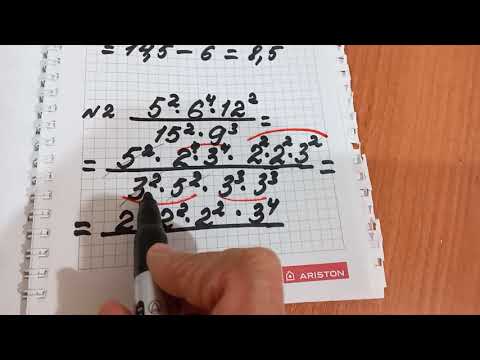 = 14,5 - 6 = 8,5
№2 5²·6⁴·12² / 15²·9³ =
= 5²·2⁴·3⁴·2²·2²·3² / 3²·5²·3³·3³ =
= 2 2²·2²·3⁴
ARISTON